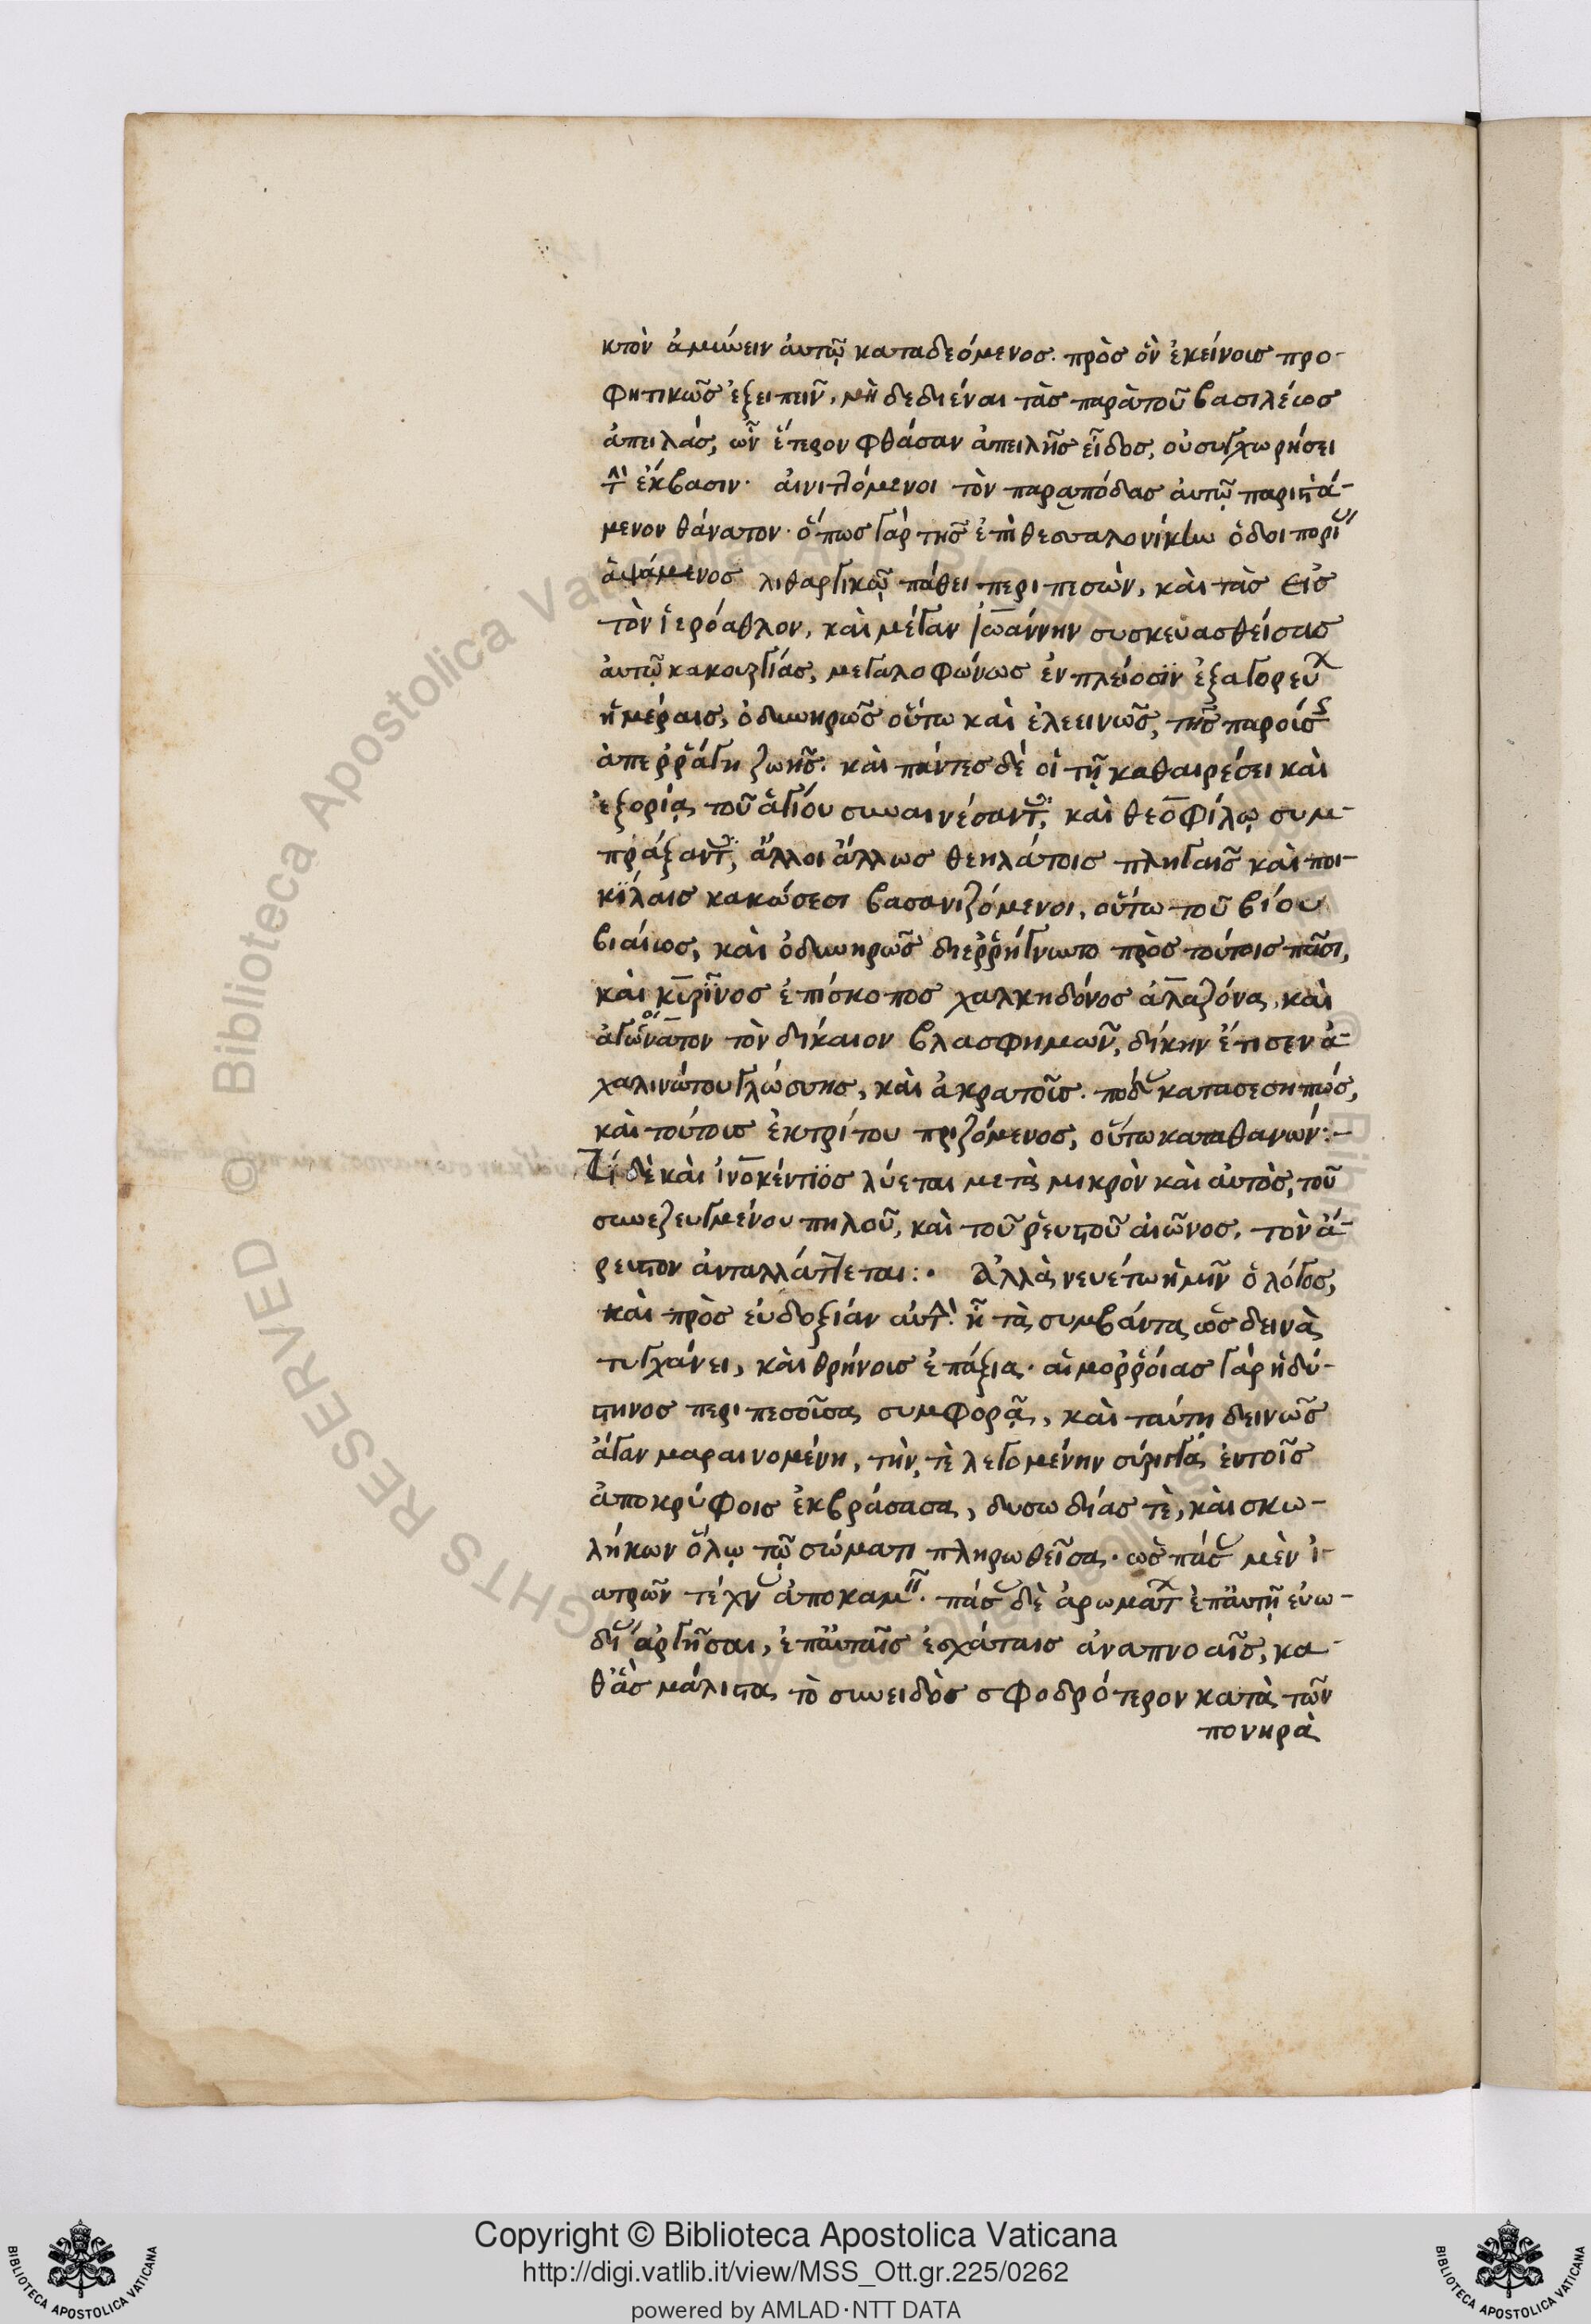 κτὸν ἀμύνειν ἀυτῷ καταδεόμενος. πρὸς ὃν ἐκείνοις προ-
φητικῶς ἐξειπεῖν, μὴ δεδιέναι τὰς παρὰ τοῦ βασιλέως
ἀπειλάς, ὧν ἕτερον φθάσαν ἀπειλῆς εἶδος, οὐ συγχωρήσει
τὴν ἐκβασιν· ἀινιττόμενοι τὸν παραπόδας ἀυτῷ παριστά-
μενον θάνατον· ὅπως γὰρ τῆς ἐπὶ θεσσαλονίκην ὁδοιπορί
ἁψάμενος λιθαργικῷ πάθει περιπεσὼν, καὶ τὰς εἰς
τὸν ἱερόαθλον, καὶ μέγαν Ἰωάννην συσκευασθείσας
ἀυτῷ κακουργίας, μεγαλοφώνως ἐν πλείοσιν ἐξαγορευ
ἡμέραις, ὀδυνηρῶς οὕτω καὶ ἐλεεινῶς, τῆς παρούσ
ἀπεῤῥάγη ζωῆς. καὶ πάντες δέ οἱ τῇ καθαιρέσει καὶ
ἐξορίᾳ τοῦ ἁγίου συναινέσαντ, καὶ θεοφίλῳ συμ-
πράξαντ, ἄλλοι ἄλλως θεηλάτοις πληγαῖς καὶ ποι-
κίλαις κακώσεσι βασανιζόμενοι, οὕτω τοῦ βίου
βιαίως, καὶ ὀδυνηρῶς διεῤῥήγνυντο πρὸς τούτοις πᾶσι,
καὶ κυρῖνος ἐπίσκοπος χαλκηδόνος ἀλαζόνα, καὶ
ἀγώνατον τὸν δίκαιον βλασφημῶν, δίκην ἔτισεν ἀ-
χαλινώτου γλώσσης, καὶ ἀκρατοῦς. πόδ κατασεσηπώς,
καὶ τούτοις ἐκτρίτου πριζόμενος, οὕτω καταθανών:-
Τί δὲ καὶ ἰνοκέντϊος λύεται μετὰ μικρὸν καὶ ἀυτὸς, τοῦ
συνεζευγμένου πηλοῦ, καὶ τοῦ ῥευστοῦ αἰῶνος, τὸν ἄ-
ρευστον ἀνταλλάττεται:· Ἀλλὰ νευέτω ἡμῖν ὁ λόγος,
καὶ πρὸς ἐυδοξίαν ἀυτὴν ᾗ τὰ συμβάντα ὡς δεινὰ
τυγχάνει, καὶ θρήνοις ἐπάξια· αἱμοῤῥόιας γάρ ἡ δύ-
στηνος περιπεσοῦσα συμφορᾷ, καὶ ταύτῃ δεινῶς
ἄγαν μαραινομένη, τὴν, τὲ λεγομένην σύριγγα ἐν τοῖς
ἀποκρύφοις ἐκβράσασα, δυσωδίας τὲ, καὶ σκω-
λήκων ὅλῳ τῷ σώματι πληρωθεῖσα· ὡς πάσ μὲν ἰ-
ατρῶν τέχν ἀποκαμ. πάσ δὲ ἀρωματ ἐπ' ἀυτῇ ἐυω-
δί ἀργῆσαι, ἐπ' ἀυταῖς ἐσχάταις ἀναπνοαῖς, κα-
θ' ἃς μάλιστα τὸ συνειδὸς σφοδρότερον κατὰ τῶν
πονηρὰ
Copyright © Biblioteca Apostolica Vaticana
http://digi.vatlib.it/view/MSS_Ott.gr.225/0262
powered by AMLAD·NTT DATA